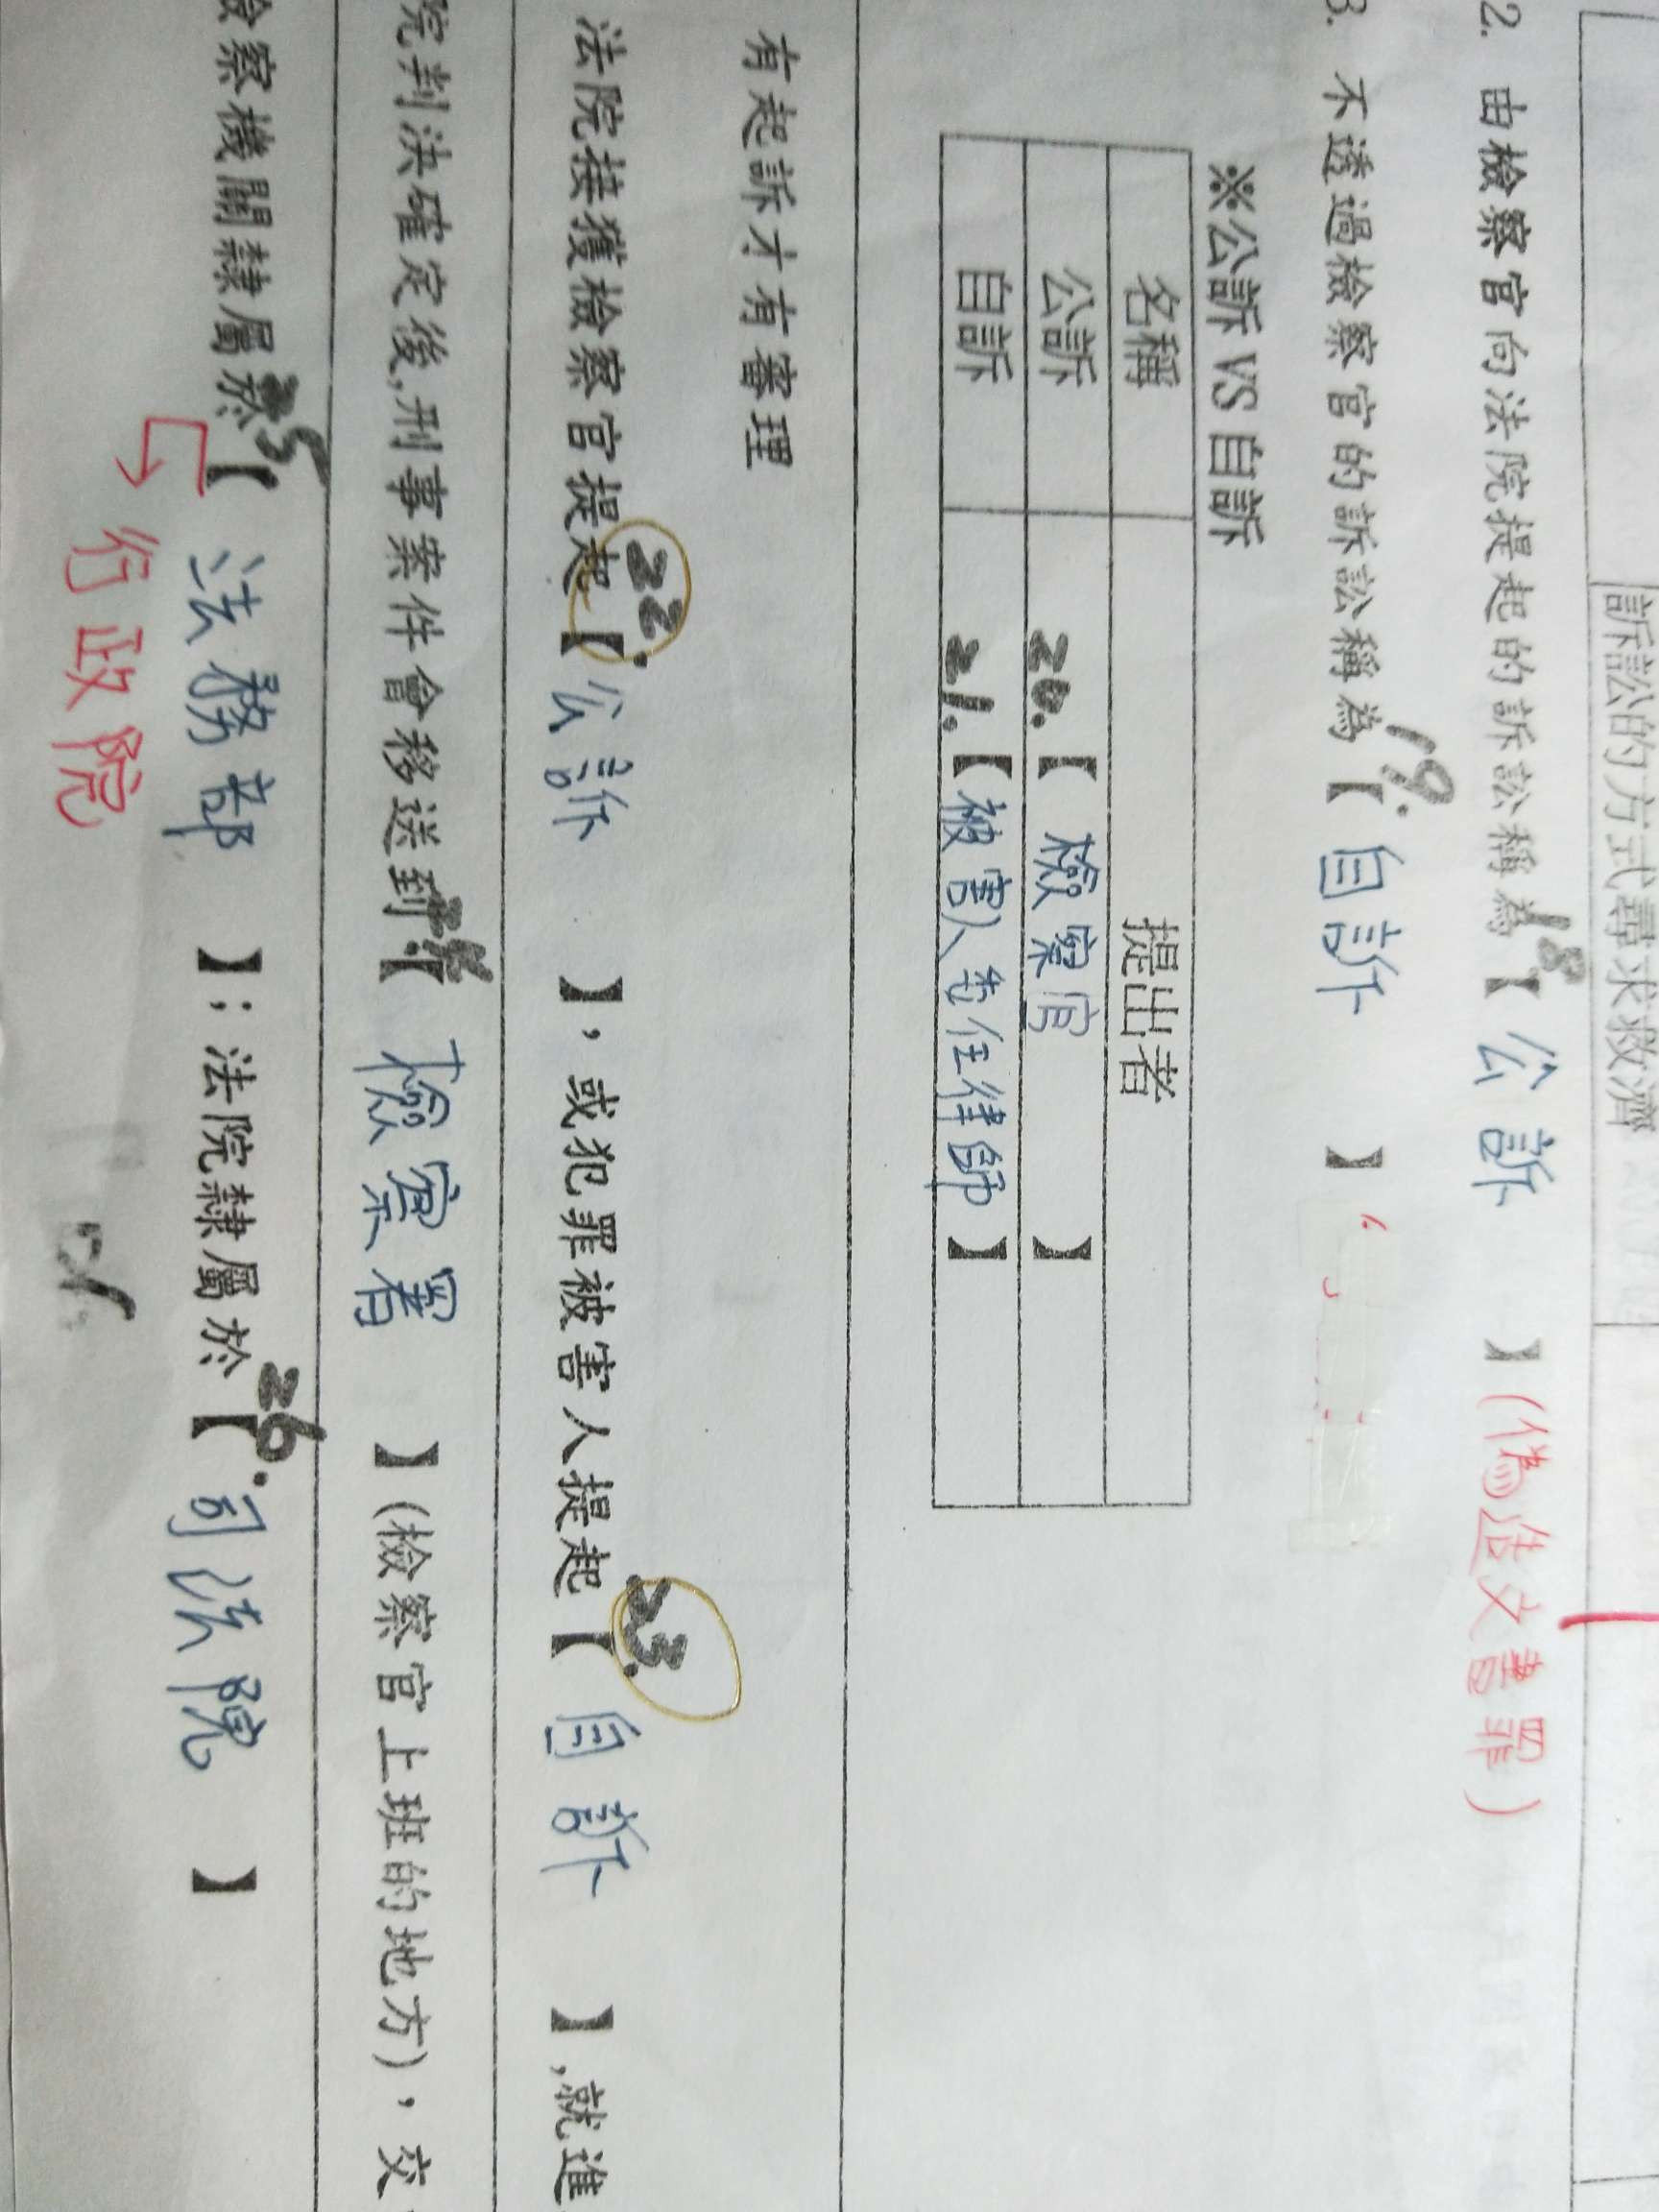 訴訟的方式尋求救濟
2. 由檢察官向法院提起的訴訟稱為18【公訴】(偽造文書罪)
3. 不透過檢察官的訴訟稱為19.【自訴】
※公訴 VS 自訴
名稱 提出者
公訴 20.【檢察官】
自訴 21.【被害人委任律師】
有起訴才有審理
法院接獲檢察官提起22.【公訴】，或犯罪被害人提起23.【自訴】,就進
院判決確定後,刑事案件會移送到【檢察署】(檢察官上班的地方)，交
檢察機關隸屬於【法務部】；法院隸屬於26.【司法院】
行政院